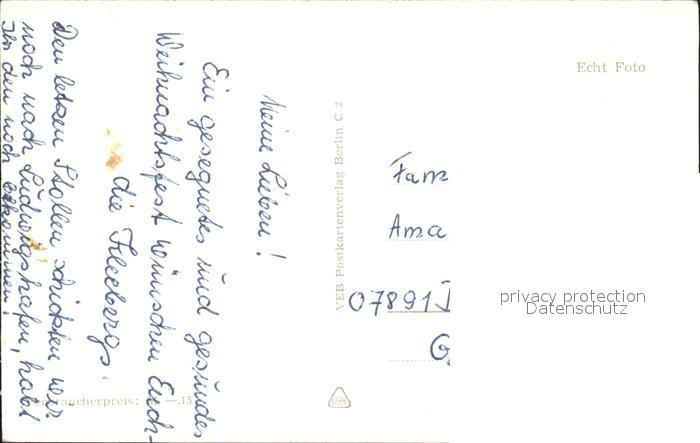 Meine Lieben!
Ein gesegnetes und gesundes
Weihnachtsfest wünschen Euch-
die
Den letzen Stollen schickten wir
noch nach Ludwigshafen, habt
Ihr den noch bekommen!
VEB Postkartenverlag Berlin C 2
Echt Foto
Fam
Ama
07891
privacy protection
Datenschutz
raucherpreis: —.15